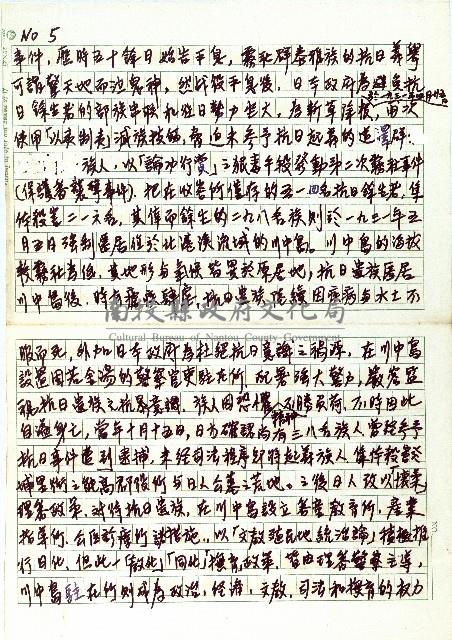 No 5
事件，歷時五十餘日始告平息，霧社群泰雅族的抗日義舉
可謂驚天地而泣鬼神，然戰役平息後，日本政府為避免抗
日餘生者的部族串聯和壯日勢力坐大，為斬草除根，再次
使用「以夷制夷」滅族技倆，脅迫未參予抗日起義的道澤群
族人，以「論功行賞」之
發動第二次霧社事件
(保護番襲擊事件)，把在收容所僅存的五一四名抗日餘生者，
殺害二一六名，其倖而餘生的二九八名族則於一九三一年五
月五日強制遷居後於北港溪流域的川中島。川中島的海拔
較霧社為低，其地形與氣候皆異於原居地，抗日遺族遷居
川中島後，時有罹患瘧疾，抗日遺族陸續因疾病與水土不
南投縣政府文化局
Cultural Bureau of Nantou County Government
服而死，外加日本政府為杜絕抗日意識之禍源，在川中島
設置固若金湯的警察官吏駐在所，配署強大警力，嚴密監
視抗日遺族之抗暴意識，族人因恐懼 不勝負荷，不時因此
精神
自縊身亡，當年十月十五日，日方確認尚有三八名族人曾經參予
抗日事件遭到逮捕，未經司法程序即將起義族人
埔里街之能高郡役所與日人公墓之荒地。之後日人改以「懷柔
理蕃政策，對待抗日遺族，在川中島設立番童教育所，產業
指導所、公医診療所諸措施，以「文教殖民地統治論」積極推
行日化，但此一「教化」「同化」撫育政策，皆由理番警察主導，
川中島駐在所則成為政治，經濟，文教，司法和撫育的权力